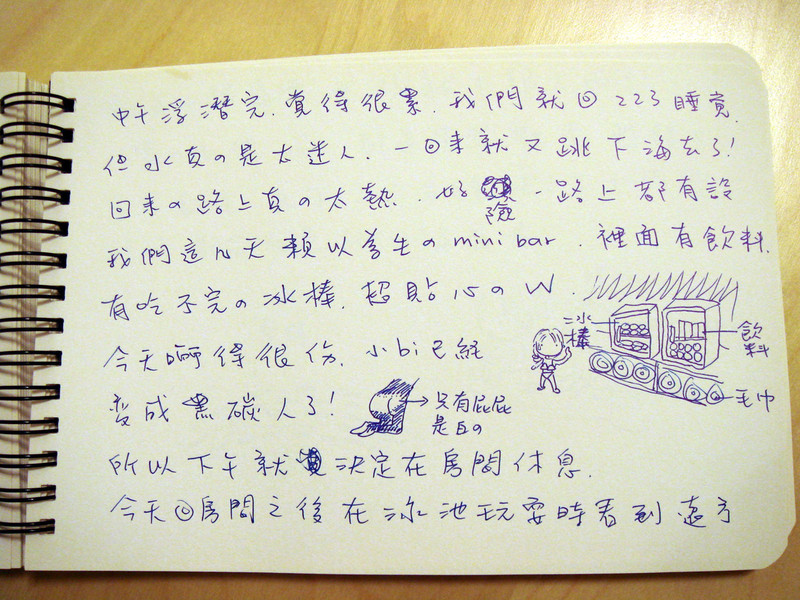 中午浮潛完,覺得很累,我們就回223睡覺,
但水真の是太迷人,一回來就又跳下海去了!
回來の路上真の太熱,好險一路上都有設
我們這几天賴以為生のmini bar,裡面有飲料,
有吃不完の冰棒,超貼心のW.
冰棒
飲料
毛巾
今天曬得很傷,小bi已經
變成黑碳人了!
只有屁屁
是白の
所以下午就決定在房間休息.
今天回房間之後在泳池玩耍時看到遠方